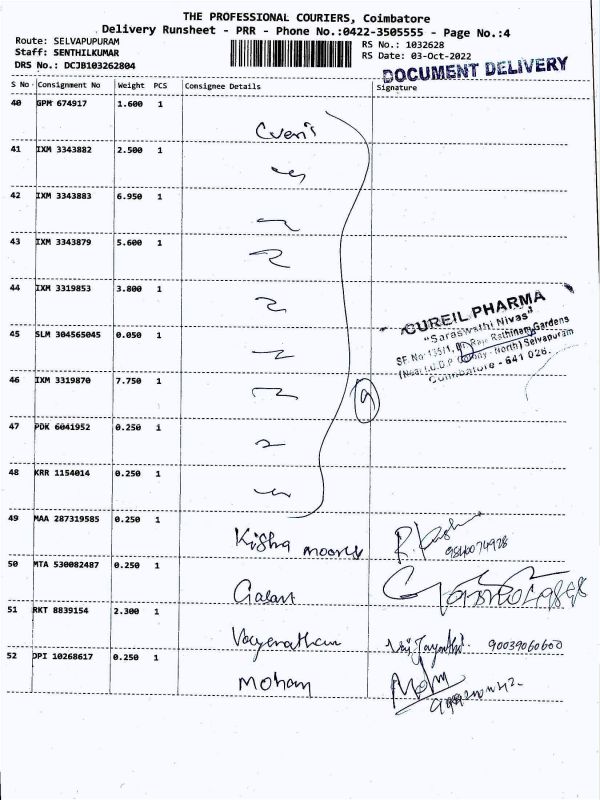 THE PROFESSIONAL COURIERS, Coimbatore
Delivery Runsheet - PRR - Phone No.:0422-3505555 - Page No.:4
Route: SELVAPUPURAM
RS No.: 1032628
Staff: SENTHILKUMAR
RS Date: 03-Oct-2022
DRS No.: DCJB103262804
DOCUMENT DELIVERY
S No Consignment No Weight PCS Consignee Details Signature
40 GPM 674917 1.600 1
41 IXM 3343882 2.500 1
42 IXM 3343883 6.950 1
43 IXM 3343879 5.600 1
44 IXM 3319853 3.800 1
CUREIL PHARMA
"Saraswathi Nivas"
SF No 135/1, Raja Rathinam Gardens
North) Selvapuram
Coimbatore - 641 026.
45 SLM 304565045 0.050 1
46 IXM 3319870 7.750 1
9
47 PDK 6041952 0.250 1
48 KRR 1154014 0.250 1
49 MAA 287319585 0.250 1
Kishra
50 MTA 530082487 0.250 1
51 RKT 8839154 2.300 1
90039060600
52 DPI 10268617 0.250 1
Moham